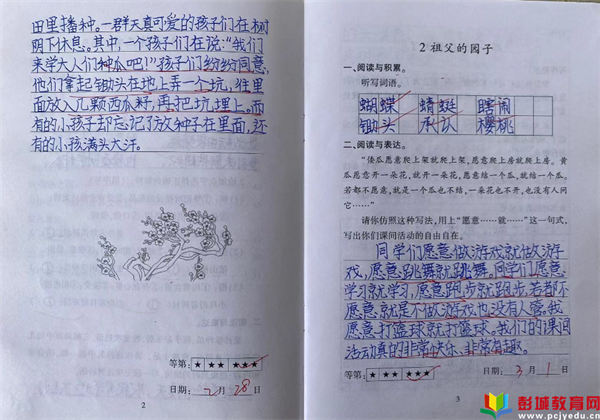 田里播种。一群天真可爱的孩子们在树
阴下休息。其中,一个孩子们在说:“我们
来学大人们种瓜吧!”孩子们纷纷同意,
他们拿起锄头在地上弄一个坑,往里
面放入几颗西瓜籽,再把坑埋上。而
有的小孩子却忘记了放种子在里面,还
有的小孩满头大汗。
等第: ★ ★★ ★★★
日期: 2 月 28 日
2
2 祖父的园子
一、阅读与积累。
听写词语。
蝴蝶 蜻蜓 瞎闹
锄头 承认 樱桃
二、阅读与表达。
“倭瓜愿意爬上架就爬上架,愿意爬上房就爬上房。黄
瓜愿意开一朵花,就开一朵花,愿意结一个瓜,就结一个瓜。
若都不愿意,就是一个瓜也不结,一朵花也不开,也没有人问
它……”
请你仿照这种写法,用上“愿意……就……”这一句式,
写出你们课间活动的自由自在。
同学们愿意做游戏就做游
戏,愿意跳舞就跳舞。同学们愿意
学习就学习,愿意跑步就跑步。若都不
愿意就是不做游戏也没有人管。我
愿意打篮球就打篮球。我们的课间
活动真的非常快乐、非常有趣。
等第: ★ ★★ ★★★
日期: 3 月 1 日
3
彭城教育网
www.pcjyedu.cn